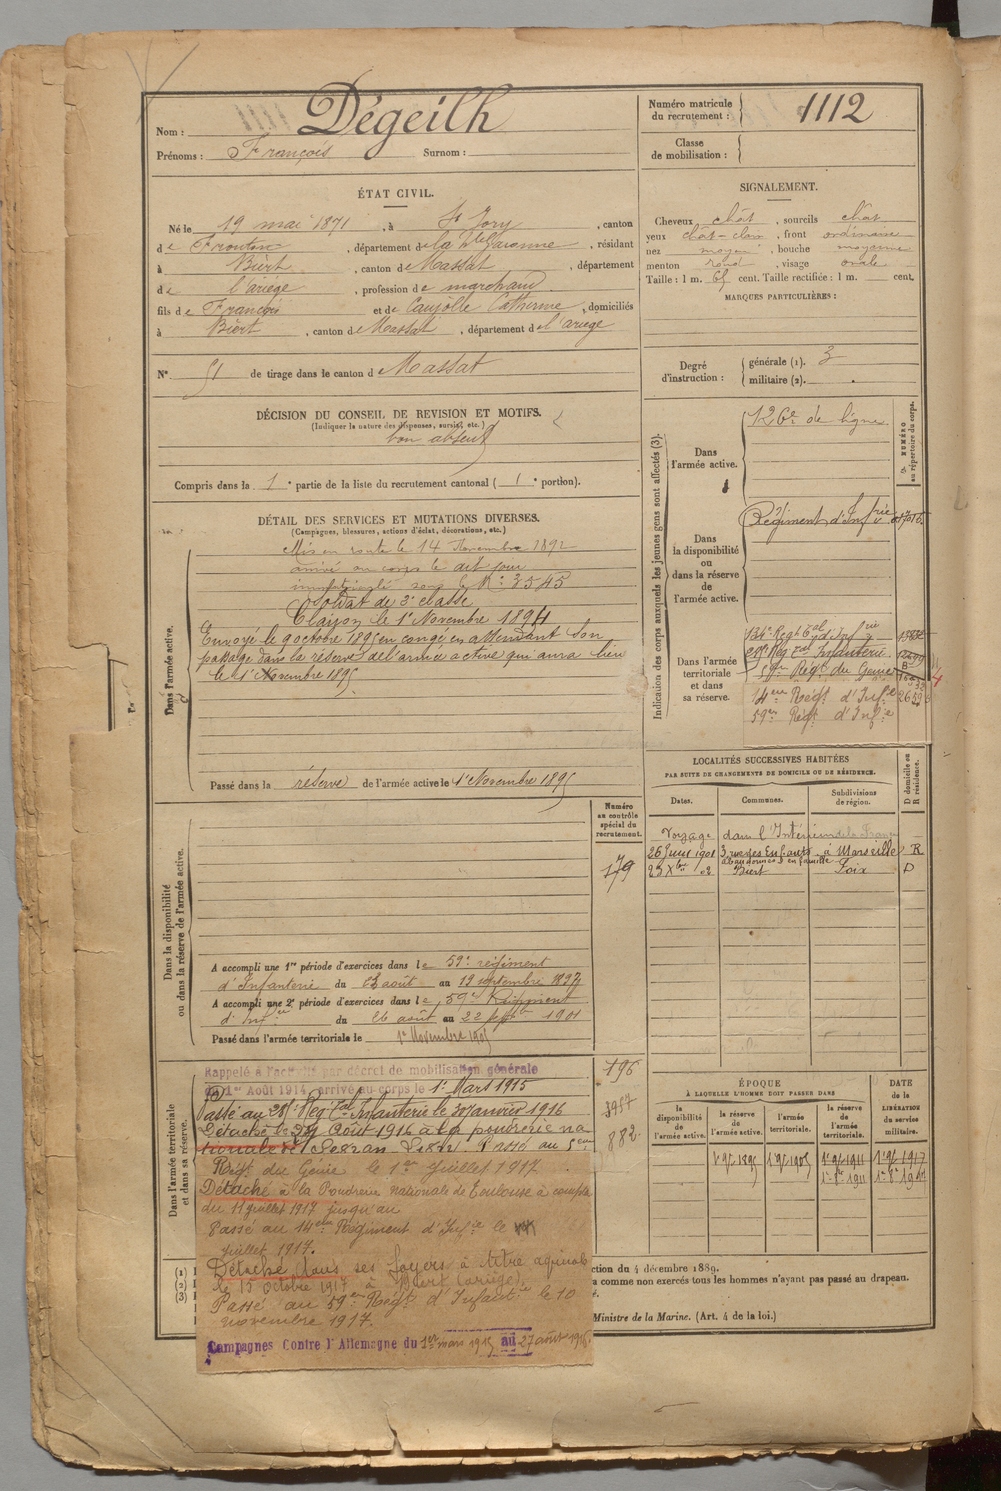 Nom : Dégeilh
Prénoms : François Surnom :
Numéro matricule du recrutement : 1112
Classe de mobilisation :
ÉTAT CIVIL.
Né le 19 mai 1871, à St Jory, canton
de Fronton, département de la Hte Garonne, résidant
à Biert, canton de Massat, département
de l'ariège, profession de marchand.
fils de François et de Caujolle Catherine, domiciliés
à Biert, canton de Massat, département de l'ariège
N° 51 de tirage dans le canton d Massat
DÉCISION DU CONSEIL DE REVISION ET MOTIFS.
(Indiquer la nature des dispenses, sursis, etc.)
bon absent
Compris dans la 1e partie de la liste du recrutement cantonal (1e portion).
SIGNALEMENT.
Cheveux chât, sourcils chât
yeux chât-clair, front ordinaire
nez moyen, bouche moyenne
menton rond, visage ovale
Taille : 1 m. 65 cent. Taille rectifiée : 1 m. cent.
MARQUES PARTICULIÈRES :
Degré d'instruction :
générale (1). 3
militaire (2).
DÉTAIL DES SERVICES ET MUTATIONS DIVERSES.
(Campagnes, blessures, actions d'éclat, décorations, etc.)
Dans l'armée active.
Mis en route le 14 Novembre 1892
arrivé au corps le dit jour
immatriculé sous le N° 3545
Soldat de 2e classe
Clairon le 1er Novembre 1894
Envoyé le 9 octobre 1895 en congé en attendant son
passage dans la réserve de l'armée active qui aura lieu
le 1er Novembre 1895
Passé dans la réserve de l'armée active le 1er Novembre 1895
Indication des corps auxquels les jeunes gens sont affectés (3).
NUMÉRO au répertoire du corps.
Dans l'armée active.
126e de ligne
Dans la disponibilité ou dans la réserve de l'armée active.
Régiment d'Infrie
Dans l'armée territoriale et dans sa réserve.
134e Regt Tal d'Infrie
Reg Tal Infanterie
Regt du Génie
14eme Regt d'Infie
59em Regt d'Infie
LOCALITÉS SUCCESSIVES HABITÉES
PAR SUITE DE CHANGEMENTS DE DOMICILE OU DE RÉSIDENCE.
Dates. Communes. Subdivisions de région. D domicile ou R résidence.
Voyage dans l'Intérieur de la France
26 Juin 1901 3, rue des Enfants abandonnés en famille à Marseille R
23 Xbre 02 Biert Foix D
Dans la disponibilité ou dans la réserve de l'armée active.
Numéro au contrôle spécial du recrutement.
179
A accompli une 1re période d'exercices dans le 59e régiment
d'Infanterie du août au 19 septembre 1897
A accompli une 2e période d'exercices dans le 59e Régiment
d'Infie du 26 août au 22 septbre 1901
Passé dans l'armée territoriale le 1er Novembre 1905
Dans l'armée territoriale et dans sa réserve.
196
3957
882
Rappelé à l'activité par décret de mobilisation générale
du 1er Août 1914, arrivé au corps le 1er Mars 1915
Passé au Reg Tal Infanterie le 30 janvier 1916
Détaché le Août 1916 à la poudrerie na
tionale de Sevran Livry. Passé au 5eme
Regt du Génie le 1er Juillet 1917.
Détaché à la Poudrerie Nationale de Toulouse à compter
du 11 juillet 1917 jusqu'au
Passé au 14eme Régiment d'Infie le
juillet 1917.
Détaché dans ses foyers à titre agricole
le 15 octobre 1917 à Biert (ariège).
Passé au 59eme Regt d'Infantie le 10
novembre 1917.
Campagnes Contre l'Allemagne du 1er mars 1915 au 27 août 1916.
ÉPOQUE
À LAQUELLE L'HOMME DOIT PASSER DANS
la disponibilité de l'armée active. la réserve de l'armée active. l'armée territoriale. la réserve de l'armée territoriale.
DATE DE LA LIBÉRATION du service militaire.
1er 9bre 1895 1er 9bre 1905 1er 9bre 1911 1er 9bre 1917
(1)
(2)
(3)
ction du 4 décembre 1889.
comme non exercés tous les hommes n'ayant pas passé au drapeau.
Ministre de la Marine. (Art. 4 de la loi.)